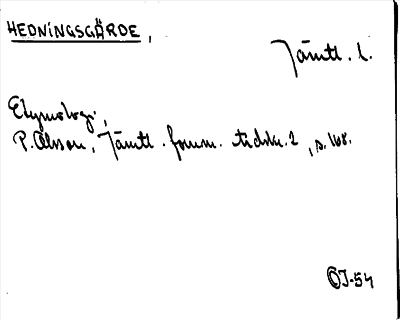 HEDNINGSGÄRDE,
Jämtl. l.
Etymologi,
P. Olsson, Jämtl. fornm. tidskr. 2, s. 168.
ÖJ-54